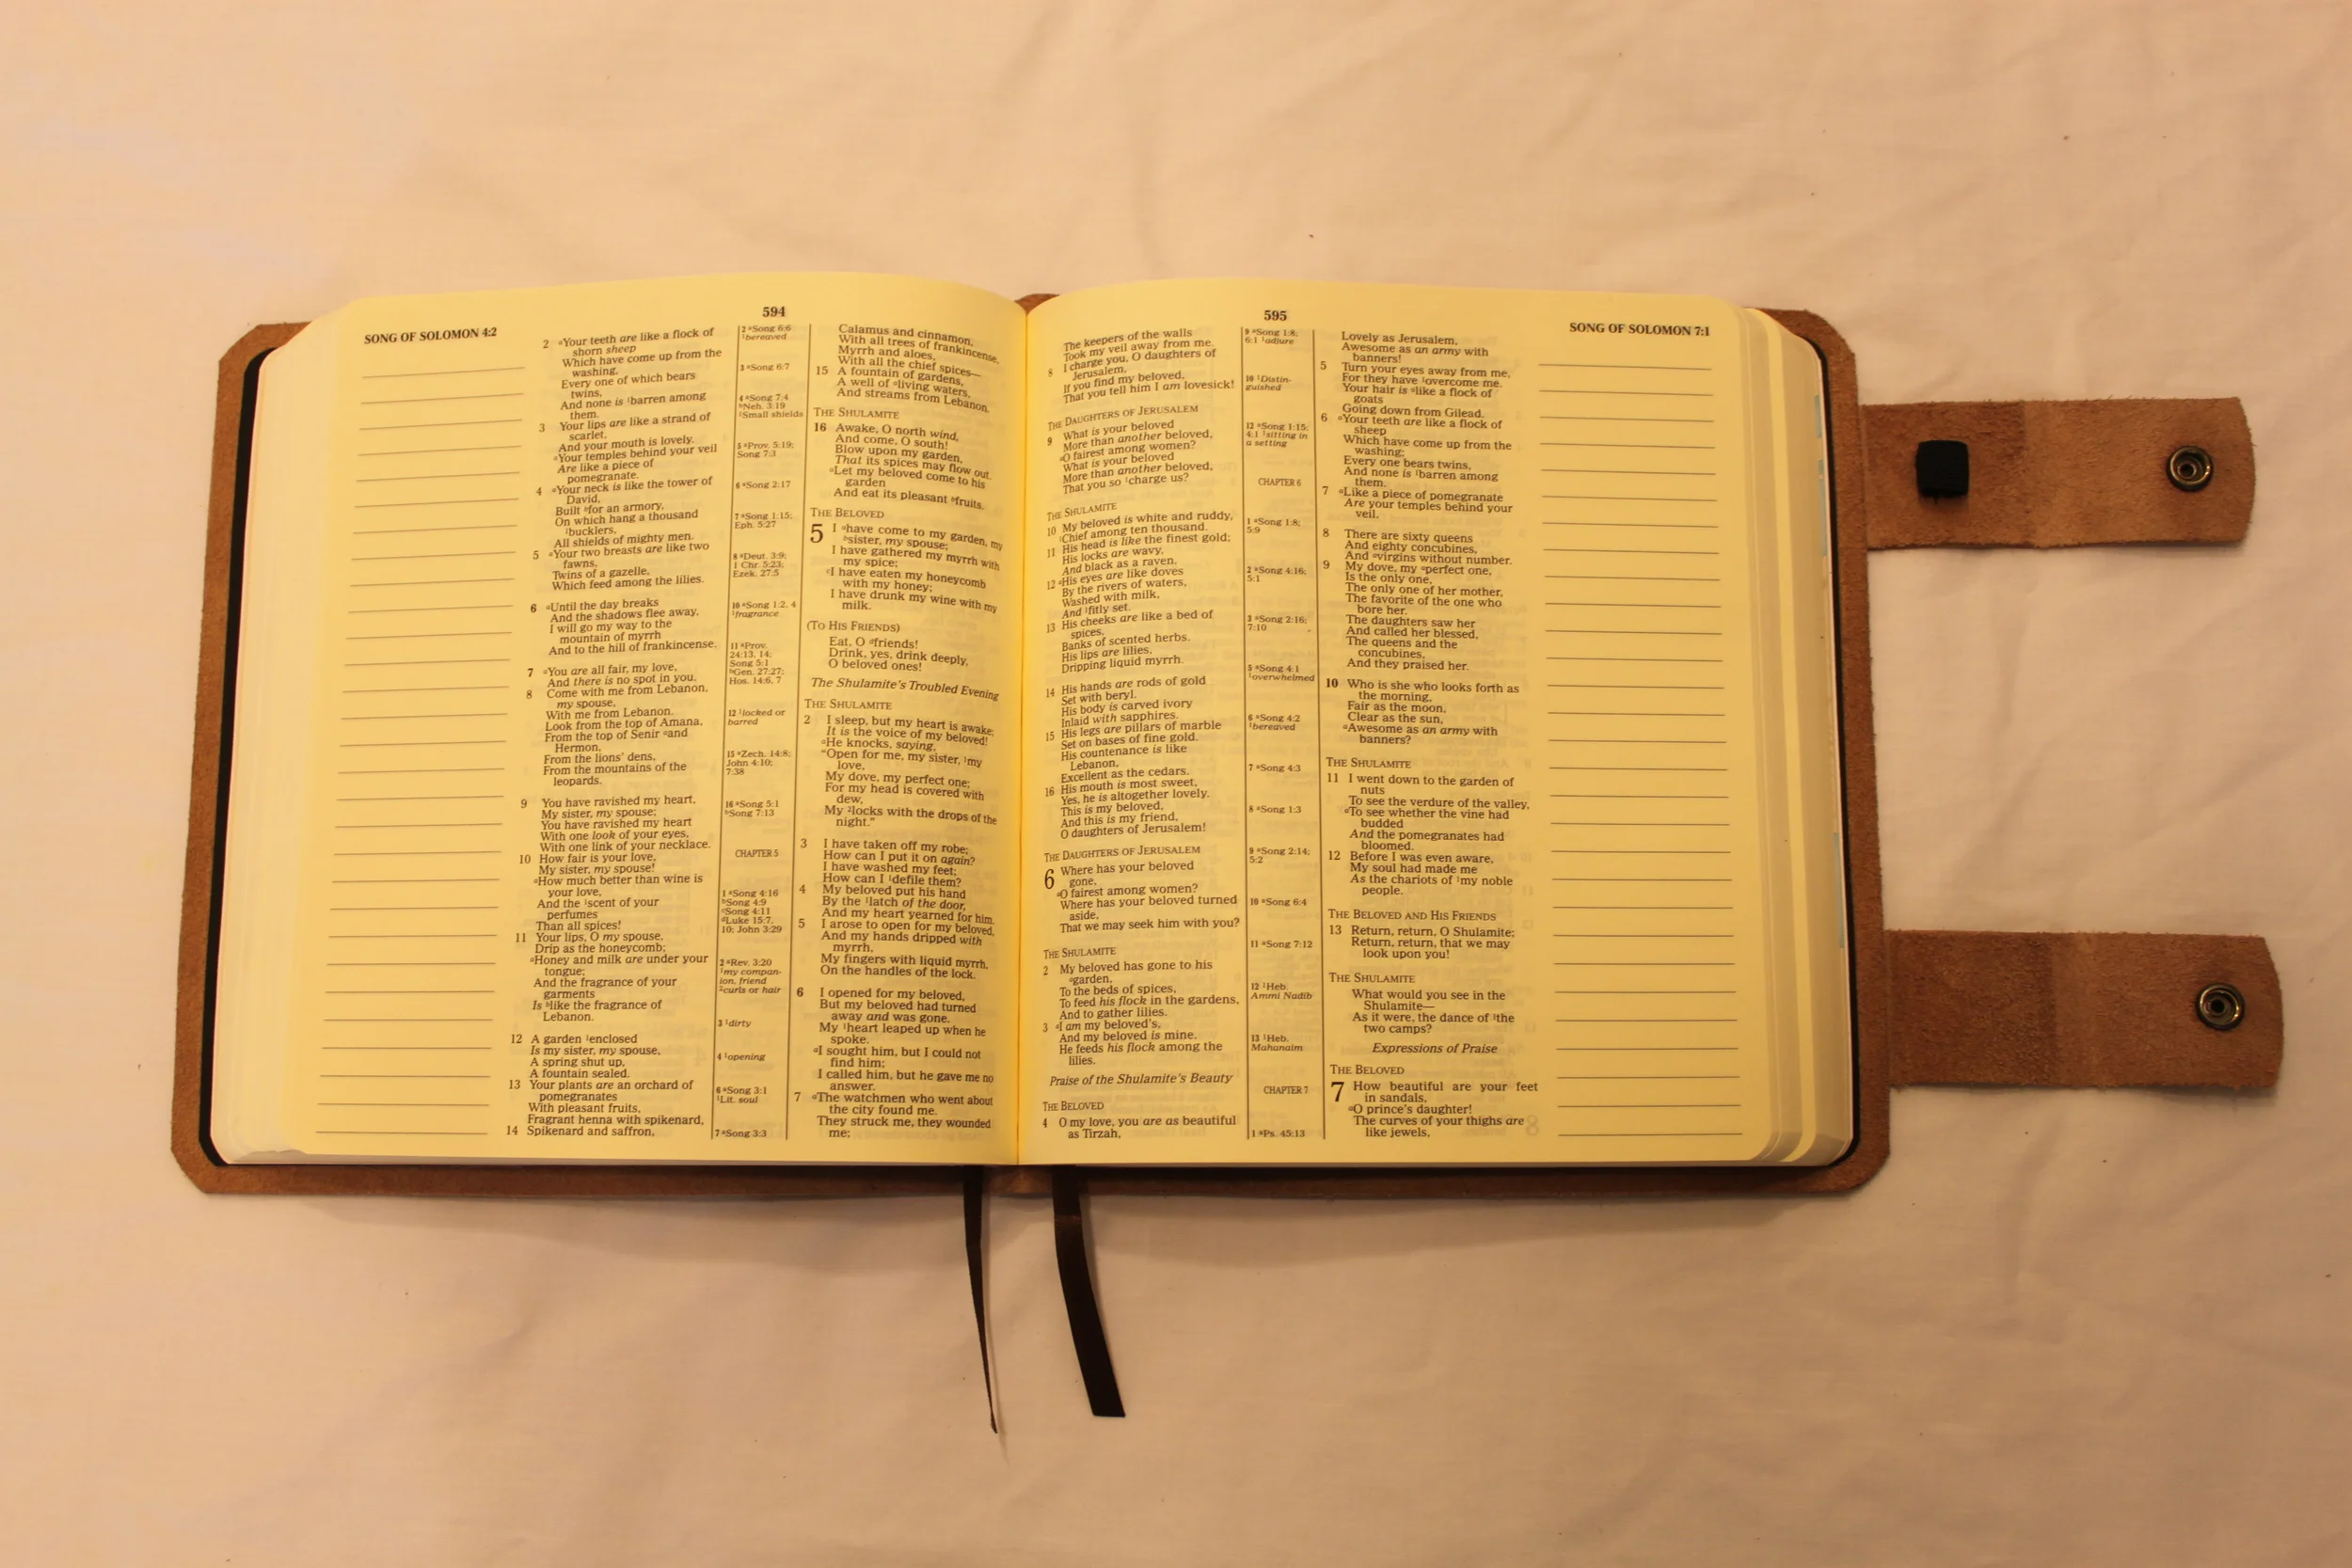 594
SONG OF SOLOMON 4:2
2 aYour teeth are like a flock of
shorn sheep
Which have come up from the
washing,
Every one of which bears
twins,
And none is 1barren among
them.
3 Your lips are like a strand of
scarlet,
And your mouth is lovely.
aYour temples behind your veil
Are like a piece of
pomegranate.
4 aYour neck is like the tower of
David,
Built bfor an armory,
On which hang a thousand
1bucklers,
All shields of mighty men.
5 aYour two breasts are like two
fawns,
Twins of a gazelle,
Which feed among the lilies.
6 aUntil the day breaks
And the shadows flee away,
I will go my way to the
mountain of myrrh
And to the hill of frankincense.
7 aYou are all fair, my love,
And there is no spot in you.
8 Come with me from Lebanon,
my spouse,
With me from Lebanon.
Look from the top of Amana,
From the top of Senir aand
Hermon,
From the lions' dens,
From the mountains of the
leopards.
9 You have ravished my heart,
My sister, my spouse;
You have ravished my heart
With one look of your eyes,
With one link of your necklace.
10 How fair is your love,
My sister, my spouse!
aHow much better than wine is
your love,
And the 1scent of your
perfumes
Than all spices!
11 Your lips, O my spouse,
Drip as the honeycomb;
aHoney and milk are under your
tongue;
And the fragrance of your
garments
Is blike the fragrance of
Lebanon.
12 A garden 1enclosed
Is my sister, my spouse,
A spring shut up,
A fountain sealed.
13 Your plants are an orchard of
pomegranates
With pleasant fruits,
Fragrant henna with spikenard,
14 Spikenard and saffron,
2 aSong 6:6
1bereaved
3 aSong 6:7
4 aSong 7:4
bNeh. 3:19
1Small shields
5 aProv. 5:19;
Song 7:3
6 aSong 2:17
7 aSong 1:15;
Eph. 5:27
8 aDeut. 3:9;
1 Chr. 5:23;
Ezek. 27:5
10 aSong 1:2, 4
1fragrance
11 aProv.
24:13, 14;
Song 5:1
bGen. 27:27;
Hos. 14:6, 7
12 1locked or
barred
15 aZech. 14:8;
John 4:10;
7:38
16 aSong 5:1
bSong 7:13
CHAPTER 5
1 aSong 4:16
bSong 4:9
cSong 4:11
dLuke 15:7,
10; John 3:29
2 aRev. 3:20
1my compan-
ion, friend
2curls or hair
3 1dirty
4 1opening
6 aSong 3:1
1Lit. soul
7 aSong 3:3
Calamus and cinnamon,
With all trees of frankincense,
Myrrh and aloes,
With all the chief spices—
15 A fountain of gardens,
A well of aliving waters,
And streams from Lebanon.
THE SHULAMITE
16 Awake, O north wind,
And come, O south!
Blow upon my garden,
That its spices may flow out.
aLet my beloved come to his
garden
And eat its pleasant bfruits.
THE BELOVED
5 I ahave come to my garden, my
bsister, my spouse;
I have gathered my myrrh with
my spice;
cI have eaten my honeycomb
with my honey;
I have drunk my wine with my
milk.
(TO HIS FRIENDS)
Eat, O dfriends!
Drink, yes, drink deeply,
O beloved ones!
The Shulamite's Troubled Evening
THE SHULAMITE
2 I sleep, but my heart is awake;
It is the voice of my beloved!
aHe knocks, saying,
"Open for me, my sister, 1my
love,
My dove, my perfect one;
For my head is covered with
dew,
My 2locks with the drops of the
night."
3 I have taken off my robe;
How can I put it on again?
I have washed my feet;
How can I 1defile them?
4 My beloved put his hand
By the 1latch of the door,
And my heart yearned for him.
5 I arose to open for my beloved,
And my hands dripped with
myrrh,
My fingers with liquid myrrh,
On the handles of the lock.
6 I opened for my beloved,
But my beloved had turned
away and was gone.
My 1heart leaped up when he
spoke.
aI sought him, but I could not
find him;
I called him, but he gave me no
answer.
7 aThe watchmen who went about
the city found me.
They struck me, they wounded
me;
595
SONG OF SOLOMON 7:1
The keepers of the walls
Took my veil away from me.
8 I charge you, O daughters of
Jerusalem,
If you find my beloved,
That you tell him I am lovesick!
THE DAUGHTERS OF JERUSALEM
9 What is your beloved
More than another beloved,
aO fairest among women?
What is your beloved
More than another beloved,
That you so 1charge us?
THE SHULAMITE
10 My beloved is white and ruddy,
1Chief among ten thousand.
11 His head is like the finest gold;
His locks are wavy,
And black as a raven.
12 aHis eyes are like doves
By the rivers of waters,
Washed with milk,
And 1fitly set.
13 His cheeks are like a bed of
spices,
Banks of scented herbs.
His lips are lilies,
Dripping liquid myrrh.
14 His hands are rods of gold
Set with beryl.
His body is carved ivory
Inlaid with sapphires.
15 His legs are pillars of marble
Set on bases of fine gold.
His countenance is like
Lebanon,
Excellent as the cedars.
16 His mouth is most sweet,
Yes, he is altogether lovely.
This is my beloved,
And this is my friend,
O daughters of Jerusalem!
THE DAUGHTERS OF JERUSALEM
6 Where has your beloved
gone,
aO fairest among women?
Where has your beloved turned
aside,
That we may seek him with you?
THE SHULAMITE
2 My beloved has gone to his
agarden,
To the beds of spices,
To feed his flock in the gardens,
And to gather lilies.
3 aI am my beloved's,
And my beloved is mine.
He feeds his flock among the
lilies.
Praise of the Shulamite's Beauty
THE BELOVED
4 O my love, you are as beautiful
as Tirzah,
9 aSong 1:8;
6:1 1adjure
10 1Distin-
guished
12 aSong 1:15;
4:1 1sitting in
a setting
CHAPTER 6
1 aSong 1:8;
5:9
2 aSong 4:16;
5:1
3 aSong 2:16;
7:10
5 aSong 4:1
1overwhelmed
6 aSong 4:2
1bereaved
7 aSong 4:3
8 aSong 1:3
9 aSong 2:14;
5:2
10 aSong 6:4
11 aSong 7:12
12 1Heb.
Ammi Nadib
13 1Heb.
Mahanaim
CHAPTER 7
1 aPs. 45:13
Lovely as Jerusalem,
Awesome as an army with
banners!
5 Turn your eyes away from me,
For they have 1overcome me.
Your hair is alike a flock of
goats
Going down from Gilead.
6 aYour teeth are like a flock of
sheep
Which have come up from the
washing;
Every one bears twins,
And none is 1barren among
them.
7 aLike a piece of pomegranate
Are your temples behind your
veil.
8 There are sixty queens
And eighty concubines,
And avirgins without number.
9 My dove, my aperfect one,
Is the only one,
The only one of her mother,
The favorite of the one who
bore her.
The daughters saw her
And called her blessed,
The queens and the
concubines,
And they praised her.
10 Who is she who looks forth as
the morning,
Fair as the moon,
Clear as the sun,
aAwesome as an army with
banners?
THE SHULAMITE
11 I went down to the garden of
nuts
To see the verdure of the valley,
aTo see whether the vine had
budded
And the pomegranates had
bloomed.
12 Before I was even aware,
My soul had made me
As the chariots of 1my noble
people.
THE BELOVED AND HIS FRIENDS
13 Return, return, O Shulamite;
Return, return, that we may
look upon you!
THE SHULAMITE
What would you see in the
Shulamite—
As it were, the dance of 1the
two camps?
Expressions of Praise
THE BELOVED
7 How beautiful are your feet
in sandals,
aO prince's daughter!
The curves of your thighs are
like jewels,